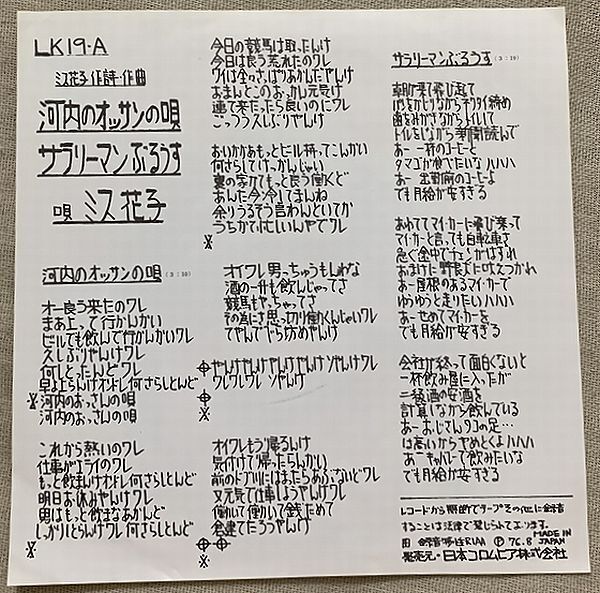 LK19-A
ミス花子 作詩・作曲
河内のオッサンの唄
サラリーマンぶるうす
唄 ミス花子
河内のオッサンの唄 (3:10)
オー良う来たのワレ
まあ上って行かんかい
ビールでも飲んで行かんかいワレ
久しぶりやんけワレ
何しとったんどワレ
早よ上らんけオドレ何さらしとんど
河内のおっさんの唄
河内のおっさんの唄
これから熱いのワレ
仕事がエライのワレ
もっと飲まんけオドレ何さらしとんど
明日お休みやんけワレ
男はもっと飲まなあかんど
しっかりしとらんけワレ何さらしとんど
今日の競馬は取ったんけ
今日は良う荒れたのワレ
ワイは全っさっぱりあかんだやんけ
おまんとこのおっかぁ元気け
連て来たったら良いのにワレ
ごっつう久しぶりやんけ
おいかかあもっとビール持ってこんかい
何さらしてけっかんじゃい
裏の学てもっと良う働くど
あんた今冷してまんね
余りうるそう言わんといてか
うちかて忙しいんやでワレ
オイワレ男っちゅうもんわな
酒の一升も飲んじゃってさ
競馬もやっちゃってさ
その為にさ思っ切り働くんじゃいワレ
てやんでぃべらぼうめやんけ
やんけやんけやんけやんけ そやんけワレ
ワレワレワレ そやんけ
オイワレもう帰るんけ
気付けて帰ったらんかい
前のドブにはまったらあぶないどワレ
又元気で仕事しようやんけワレ
働いて働いて銭ためて
倉建てたろうやんけ
サラリーマンぶるうす (3:19)
朝が来て飛び起きて
パンをかじりながらネクタイ締め
歯をみがきながらトイレして
トイレをしながら新聞読んで
あー 一杯のコーヒーと
タマゴが食べたいなハハハ
あー 出勤前のコーヒーよ
でも月給が安すぎる
あわててマイ・カーに飛び乗って
マイ・カーと言っても自転車さ
急ぐ途中でチェンがはずれ
おまけに野良犬に吠えつかれ
あー 屋根のあるマイ・カーで
ゆうゆうと走りたいハハハ
あー せめてマイ・カーを
でも月給が安すぎる
会社が終って面白くないと
一杯飲み屋に入ったが
二級酒の安酒を
計算しながら飲んでいる
あー おじさんタコの足…
は高いからやめとくよハハハ
あー キャバレーで飲みたいな
でも月給が安すぎる
レコードから無断でテープその他に録音
することは法律で禁じられております。
MADE IN
JAPAN
録音特性RIAA Ⓟ 76.8
発売元・日本コロムビア株式会社